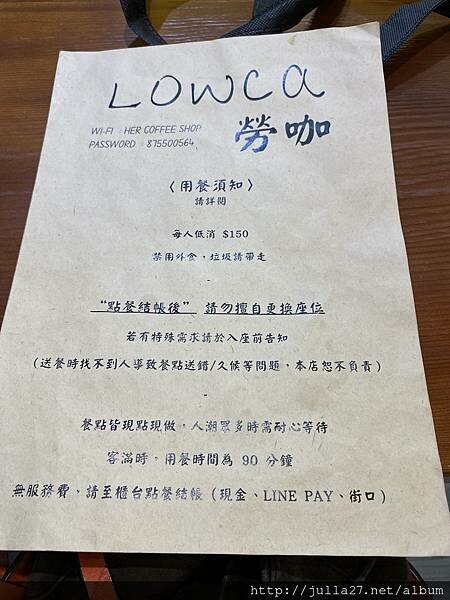 LOWCA
勞咖
WI-FI：HER COFFEE SHOP
PASSWORD：875500564
〈用餐須知〉
請詳閱
每人低消 $150
禁用外食，垃圾請帶走
-
“點餐結帳後” 請勿擅自更換座位
若有特殊需求請於入座前告知
（送餐時找不到人導致餐點送錯/久候等問題，本店恕不負責）
-
餐點皆現點現做，人潮眾多時需耐心等待
客滿時，用餐時間為 90 分鐘
無服務費，請至櫃台點餐結帳（現金、LINE PAY、街口）
http://julla27.net/album